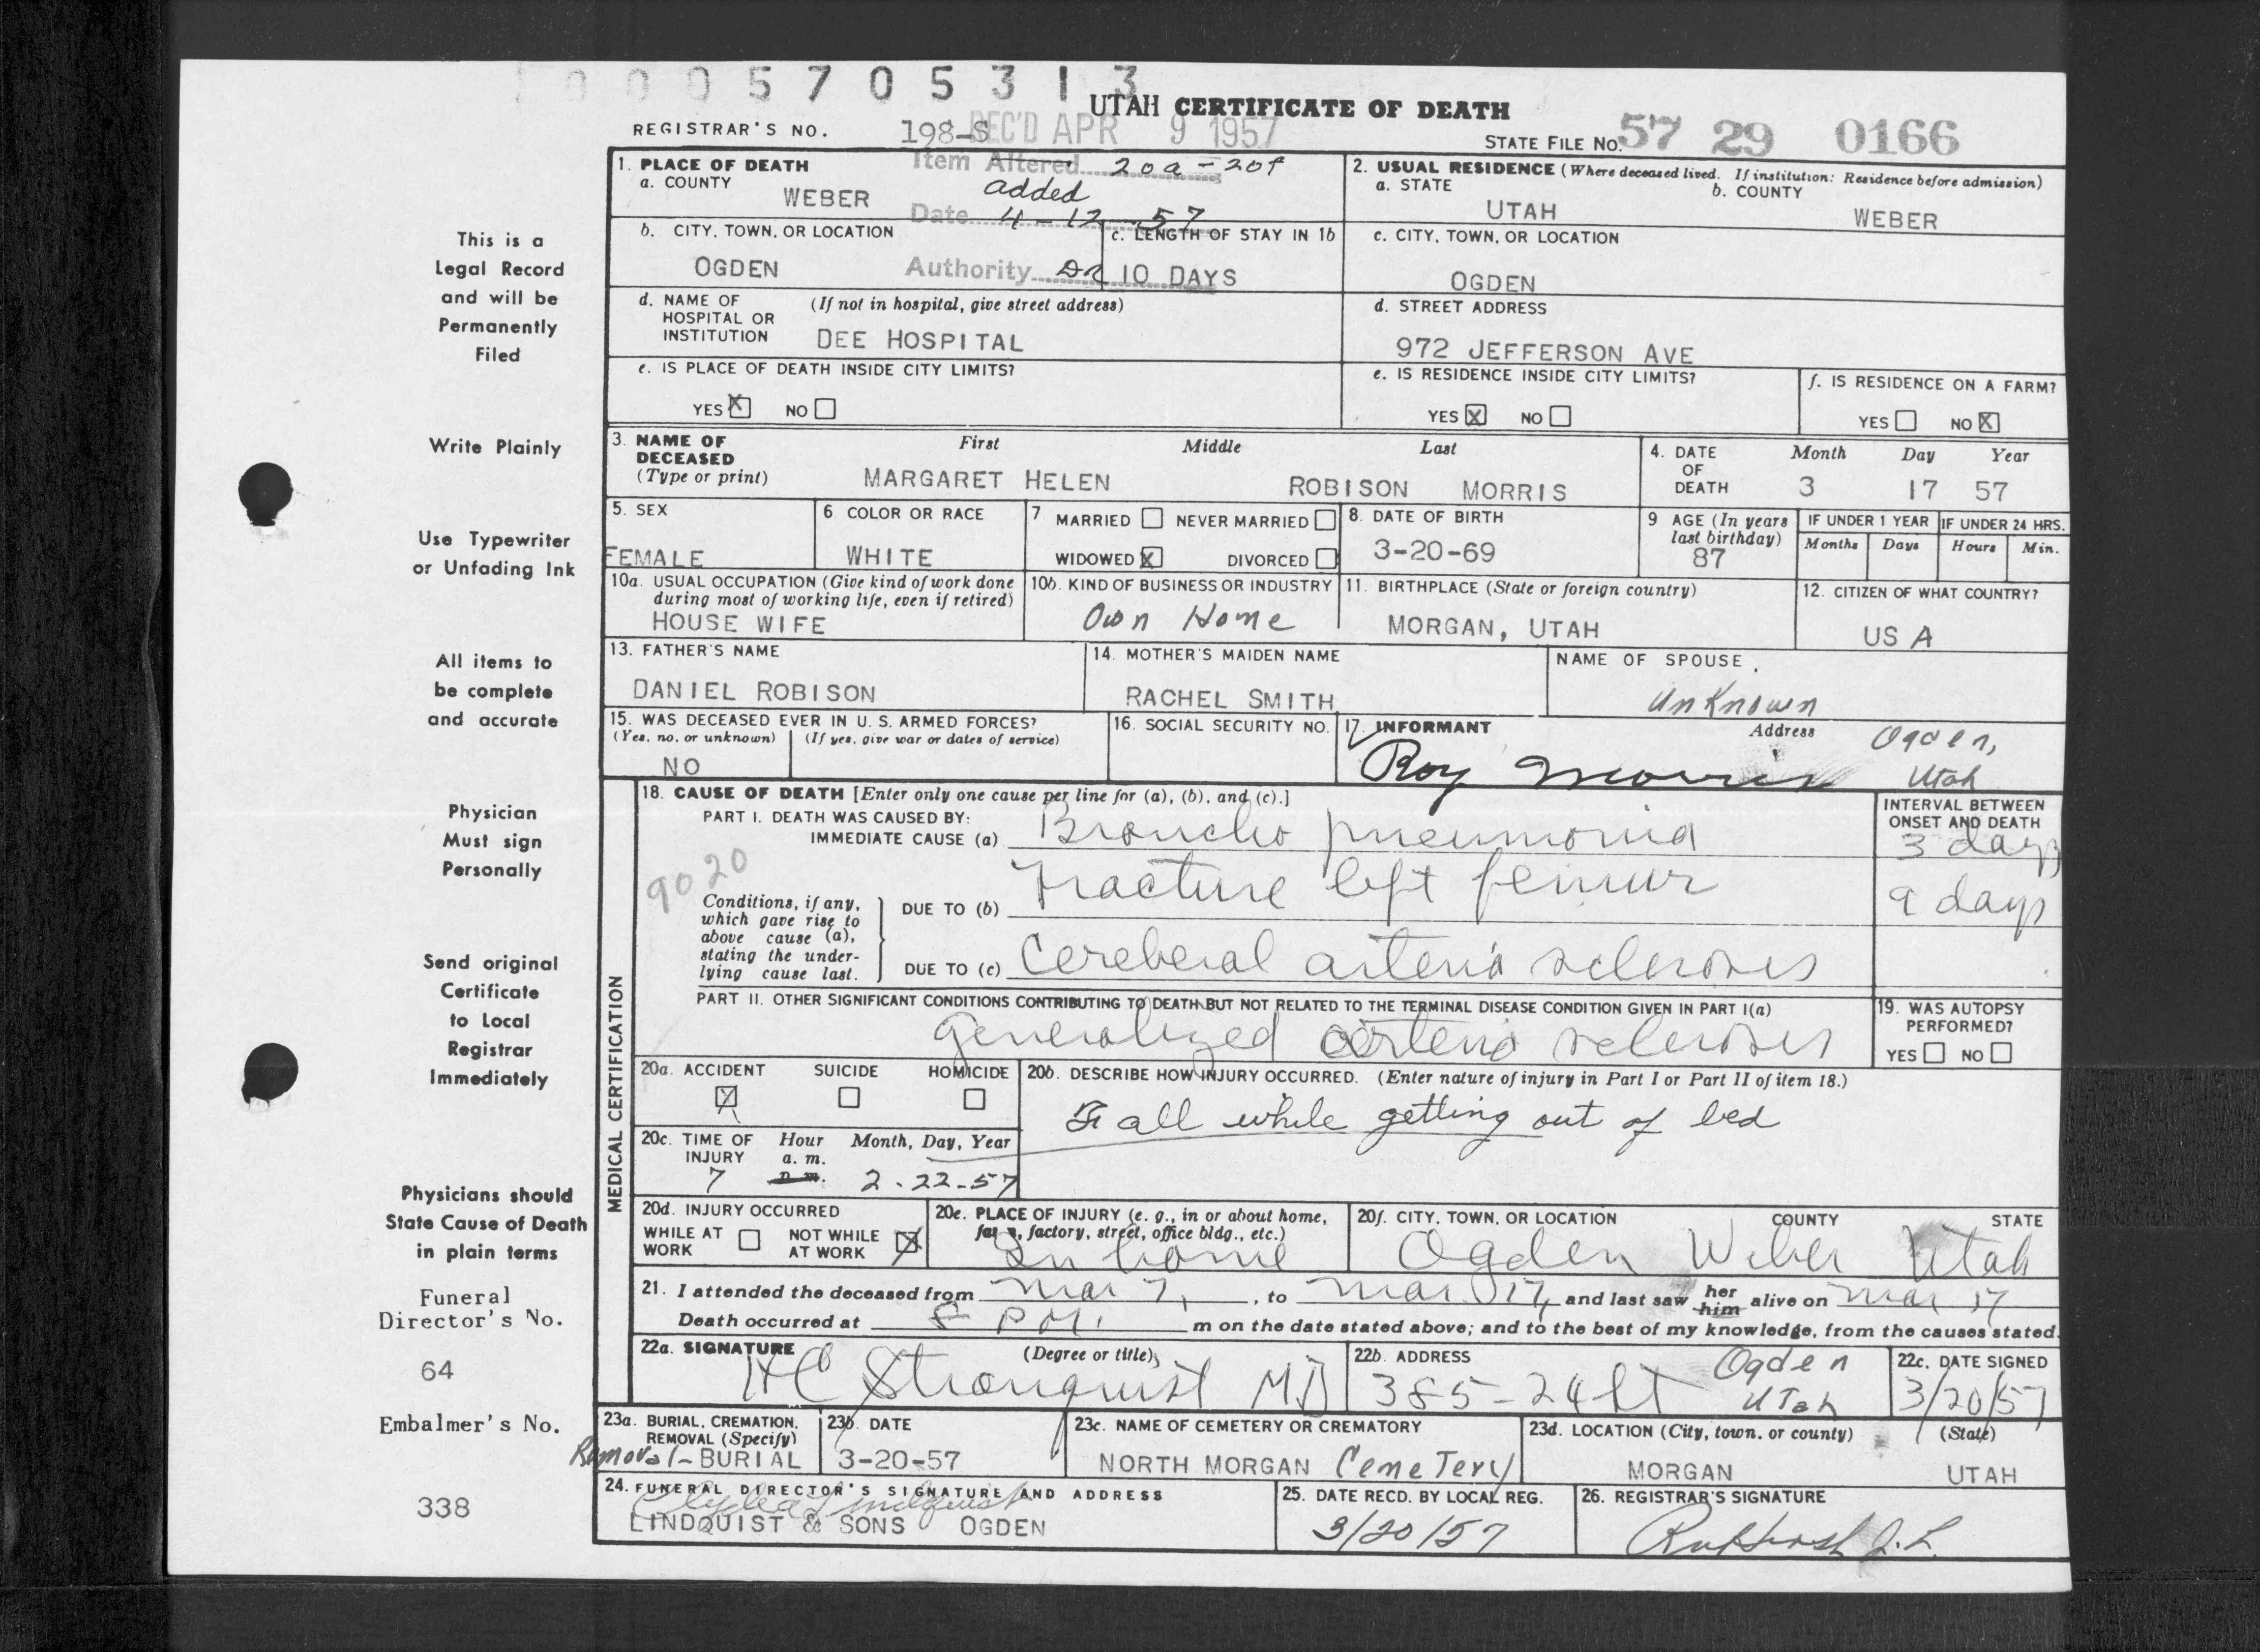 0005705313
UTAH CERTIFICATE OF DEATH
REGISTRAR'S NO. 198-S REC'D APR 9 1957
STATE FILE NO. 57 29 0166
1. PLACE OF DEATH
Item Altered 20a - 20f
a. COUNTY
WEBER
added
Date 4-12-57
2. USUAL RESIDENCE (Where deceased lived. If institution: Residence before admission)
a. STATE
UTAH
b. COUNTY
WEBER
b. CITY, TOWN, OR LOCATION
OGDEN
Authority DR
c. LENGTH OF STAY IN 1b
10 DAYS
c. CITY, TOWN, OR LOCATION
OGDEN
d. NAME OF HOSPITAL OR INSTITUTION
(If not in hospital, give street address)
DEE HOSPITAL
d. STREET ADDRESS
972 JEFFERSON AVE
e. IS PLACE OF DEATH INSIDE CITY LIMITS?
YES X NO
e. IS RESIDENCE INSIDE CITY LIMITS?
YES X NO
f. IS RESIDENCE ON A FARM?
YES NO X
3. NAME OF DECEASED
(Type or print)
First Middle Last
MARGARET HELEN ROBISON MORRIS
4. DATE OF DEATH
Month Day Year
3 17 57
5. SEX
FEMALE
6. COLOR OR RACE
WHITE
7 MARRIED NEVER MARRIED
WIDOWED X DIVORCED
8. DATE OF BIRTH
3-20-69
9 AGE (In years last birthday)
87
IF UNDER 1 YEAR
Months Days
IF UNDER 24 HRS.
Hours Min.
10a. USUAL OCCUPATION (Give kind of work done during most of working life, even if retired)
HOUSE WIFE
10b. KIND OF BUSINESS OR INDUSTRY
Own Home
11. BIRTHPLACE (State or foreign country)
MORGAN, UTAH
12. CITIZEN OF WHAT COUNTRY?
US A
13. FATHER'S NAME
DANIEL ROBISON
14. MOTHER'S MAIDEN NAME
RACHEL SMITH
NAME OF SPOUSE
UnKnown
15. WAS DECEASED EVER IN U. S. ARMED FORCES?
(Yes, no, or unknown) (If yes, give war or dates of service)
NO
16. SOCIAL SECURITY NO.
17. INFORMANT
Address
Roy Morris
Ogden,
Utah
MEDICAL CERTIFICATION
18. CAUSE OF DEATH [Enter only one cause per line for (a), (b), and (c).]
PART I. DEATH WAS CAUSED BY:
IMMEDIATE CAUSE (a) Broncho pneumonia
INTERVAL BETWEEN ONSET AND DEATH
3 days
9020
Conditions, if any, which gave rise to above cause (a), stating the underlying cause last.
DUE TO (b) Fracture left femur
9 days
DUE TO (c) Cerebral arterio sclerosis
PART II. OTHER SIGNIFICANT CONDITIONS CONTRIBUTING TO DEATH BUT NOT RELATED TO THE TERMINAL DISEASE CONDITION GIVEN IN PART I(a)
generalized arterio sclerosis
19. WAS AUTOPSY PERFORMED?
YES NO
20a. ACCIDENT SUICIDE HOMICIDE
X
20b. DESCRIBE HOW INJURY OCCURRED. (Enter nature of injury in Part I or Part II of item 18.)
Fall while getting out of bed
20c. TIME OF INJURY
Hour Month, Day, Year
a. m.
7 p. m. 2-22-57
20d. INJURY OCCURRED
WHILE AT WORK NOT WHILE AT WORK X
20e. PLACE OF INJURY (e. g., in or about home, farm, factory, street, office bldg., etc.)
In home
20f. CITY, TOWN, OR LOCATION COUNTY STATE
Ogden Weber Utah
21. I attended the deceased from Mar 7, to Mar 17, and last saw her him alive on Mar 17
Death occurred at 8 P.M. m on the date stated above; and to the best of my knowledge, from the causes stated.
22a. SIGNATURE
(Degree or title)
HC Stranquist MD
22b. ADDRESS
385-24 St Ogden
Utah
22c. DATE SIGNED
3/20/57
23a. BURIAL, CREMATION, REMOVAL (Specify)
Removal-BURIAL
23b. DATE
3-20-57
23c. NAME OF CEMETERY OR CREMATORY
NORTH MORGAN Cemetery
23d. LOCATION (City, town, or county) (State)
MORGAN UTAH
24. FUNERAL DIRECTOR'S SIGNATURE AND ADDRESS
LINDQUIST & SONS OGDEN
25. DATE RECD. BY LOCAL REG.
3/20/57
26. REGISTRAR'S SIGNATURE
This is a
Legal Record
and will be
Permanently
Filed
Write Plainly
Use Typewriter
or Unfading Ink
All items to
be complete
and accurate
Physician
Must sign
Personally
Send original
Certificate
to Local
Registrar
Immediately
Physicians should
State Cause of Death
in plain terms
Funeral
Director's No.
64
Embalmer's No.
338